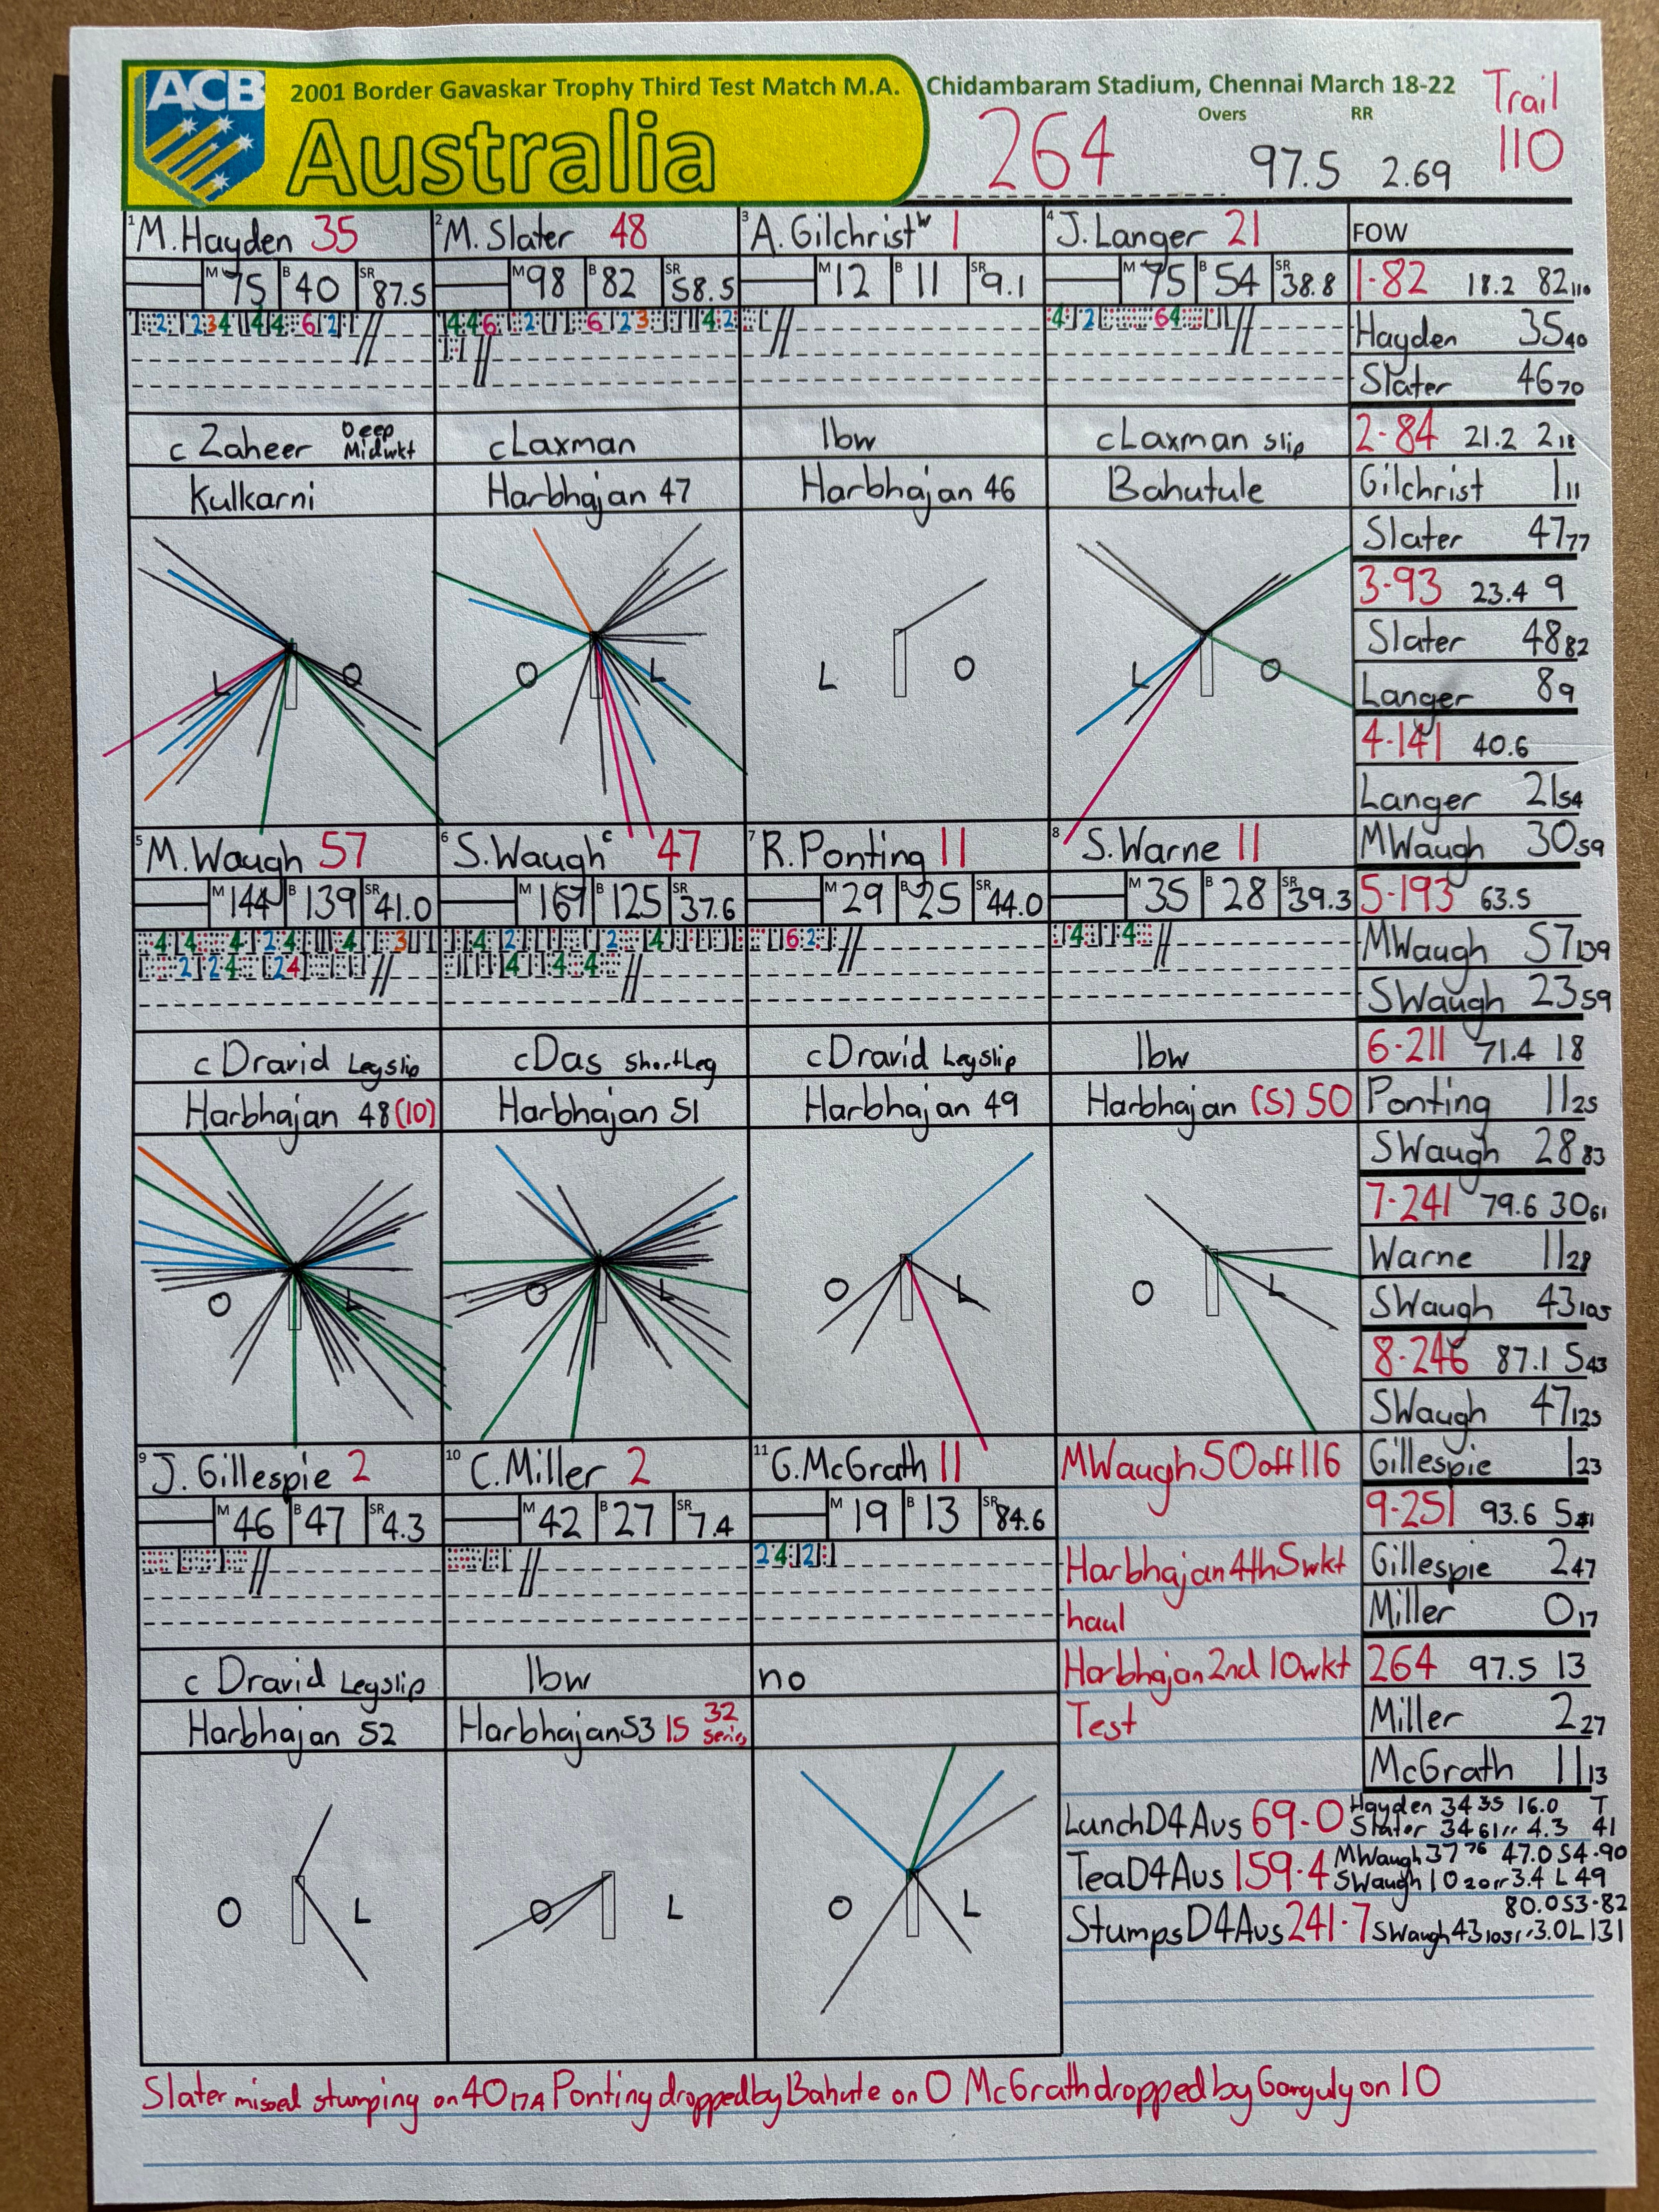 ACB
2001 Border Gavaskar Trophy Third Test Match M.A. Chidambaram Stadium, Chennai March 18-22
Australia
264
Overs
97.5
RR
2.69
Trail
110
1 M. Hayden 35
M 75 B 40 SR 87.5
c Zaheer Deep Midwkt
Kulkarni
L O
2 M. Slater 48
M 98 B 82 SR 58.5
c Laxman
Harbhajan 47
O L
3 A. Gilchrist w 1
M 12 B 11 SR 9.1
lbw
Harbhajan 46
L O
4 J. Langer 21
M 75 B 54 SR 38.8
c Laxman slip
Bahutule
L O
5 M. Waugh 57
M 144 B 139 SR 41.0
c Dravid Legslip
Harbhajan 48 (10)
O L
6 S. Waugh c 47
M 167 B 125 SR 37.6
c Das Shortleg
Harbhajan 51
O L
7 R. Ponting 11
M 29 B 25 SR 44.0
c Dravid Legslip
Harbhajan 49
O L
8 S. Warne 11
M 35 B 28 SR 39.3
lbw
Harbhajan (5) 50
O L
9 J. Gillespie 2
M 46 B 47 SR 4.3
c Dravid Legslip
Harbhajan 52
O L
10 C. Miller 2
M 42 B 27 SR 7.4
lbw
Harbhajan 53 15 32 series
O L
11 G. McGrath 11
M 19 B 13 SR 84.6
no
O L
FOW
1-82 18.2 82 110
Hayden 35 40
Slater 46 70
2-84 21.2 2 18
Gilchrist 1 11
Slater 47 77
3-93 23.4 9
Slater 48 82
Langer 8 9
4-141 40.6
Langer 21 54
MWaugh 30 59
5-193 63.5
MWaugh 57 139
SWaugh 23 59
6-211 71.4 18
Ponting 11 25
SWaugh 28 83
7-241 79.6 30 61
Warne 11 28
SWaugh 43 105
8-246 87.1 5 43
SWaugh 47 125
Gillespie 1 23
9-251 93.6 5
Gillespie 2 47
Miller 0 17
264 97.5 13
Miller 2 27
McGrath 11 13
MWaugh 50 off 116
Harbhajan 4th 5wkt
haul
Harbhajan 2nd 10wkt
Test
Lunch D4 Aus 69-0 Hayden 34 35 16.0 T
Slater 34 61 rr 4.3 41
Tea D4 Aus 159-4 MWaugh 37 76 47.0 54-90
SWaugh 10 20 rr 3.4 L 49
80.0 53-82
Stumps D4 Aus 241-7 SWaugh 43 105 rr 3.0 L 131
Slater missed stumping on 40 Ponting dropped by Bahute on 0 McGrath dropped by Ganguly on 10